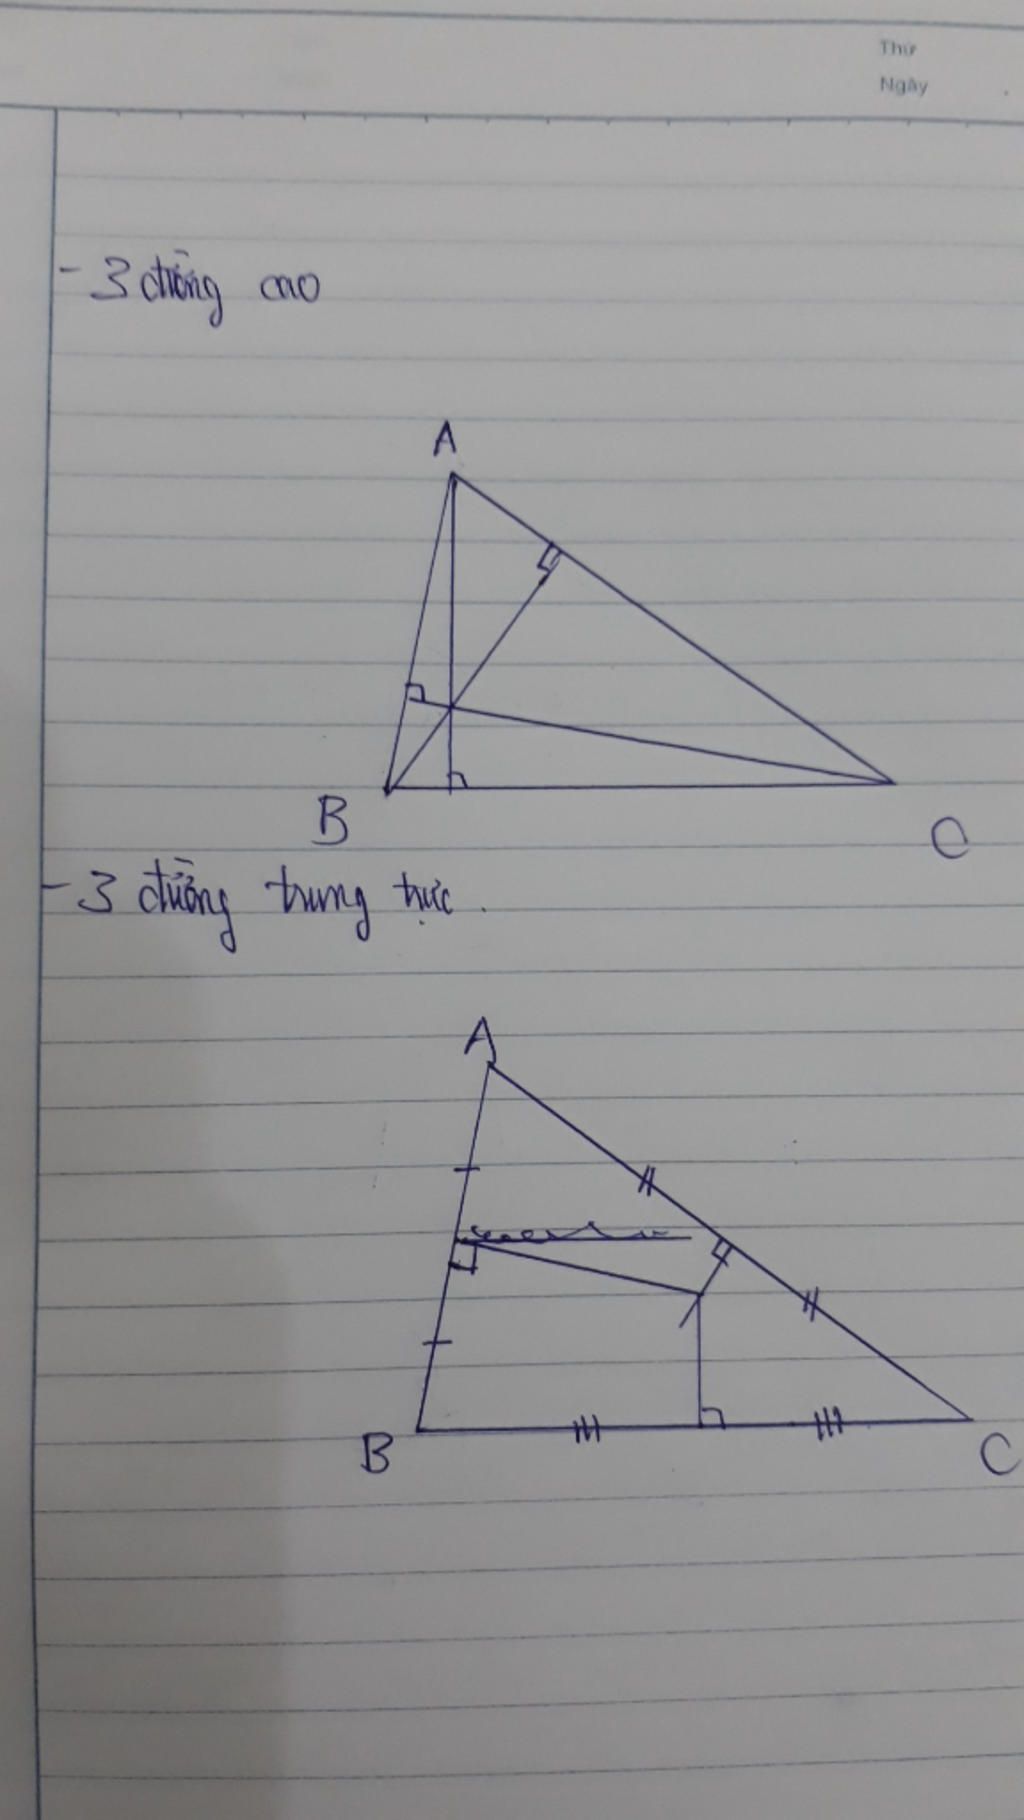 Thứ
Ngày
- 3 đường cao
A
B
C
- 3 đường trung trực.
A
B
C